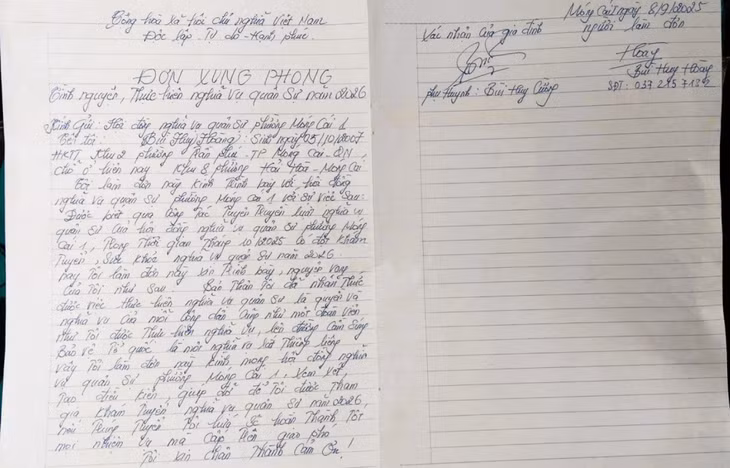 Cộng hoà Xã hội chủ nghĩa Việt Nam
Độc lập - Tự do - Hạnh phúc
ĐƠN XUNG PHONG
Tình nguyện, Thực hiện nghĩa vụ quân sự năm 2026
Kính Gửi: Hội đồng nghĩa vụ quân sự phường Móng Cái 1
Tôi tên: Bùi Huy Hoàng: Sinh ngày 05/10/2007
HKTT, Khu 2 phường Trần phú - TP Móng Cái - QN,
chỗ ở hiện nay Khu 8 phường Hải Hoà - Móng Cái
Tôi làm đơn này Kính trình bày với hội đồng
nghĩa vụ quân sự phường Móng Cái 1 với Sự Việc Sau:
Được biết qua công tác Tuyên Truyền luật nghĩa vụ
quân sự của hội đồng nghĩa vụ quân sự phường Móng
Cái 1, Trong Thời gian Tháng 10/2025 có đợt khám
Tuyển, Sức khỏe nghĩa vụ quân sự năm 2026.
nay Tôi làm đơn này xin Trình bày, nguyện vọng
của Tôi như sau. Bản Thân Tôi đã nhận Thức
được việc thực hiện nghĩa vụ quân sự là quyền và
nghĩa vụ của mỗi công dân cũng như một đoàn viên
như Tôi được Thực hiện nghĩa vụ, lên đường cầm Súng
Bảo vệ Tổ quốc là một nghĩa vụ
Vậy Tôi làm đơn này Kính mong hội đồng nghĩa
vụ quân sự phường Móng Cái 1, xem xét,
Tạo điều kiện, giúp đỡ để Tôi được Tham
gia khám Tuyển, nghĩa vụ quân sự năm 2026,
nếu Trúng Tuyển Tôi hứa Sẽ hoàn Thành Tốt
mọi nhiệm vụ mà cấp Trên giao phó
Tôi xin chân Thành Cảm Ơn!
Móng Cái, ngày 8/9/2025
Xác nhận Của gia đình người làm đơn
Hoàng
Bùi Huy Hoàng
phụ Huynh: Bùi Huy Cường SĐT: 037 215 7132